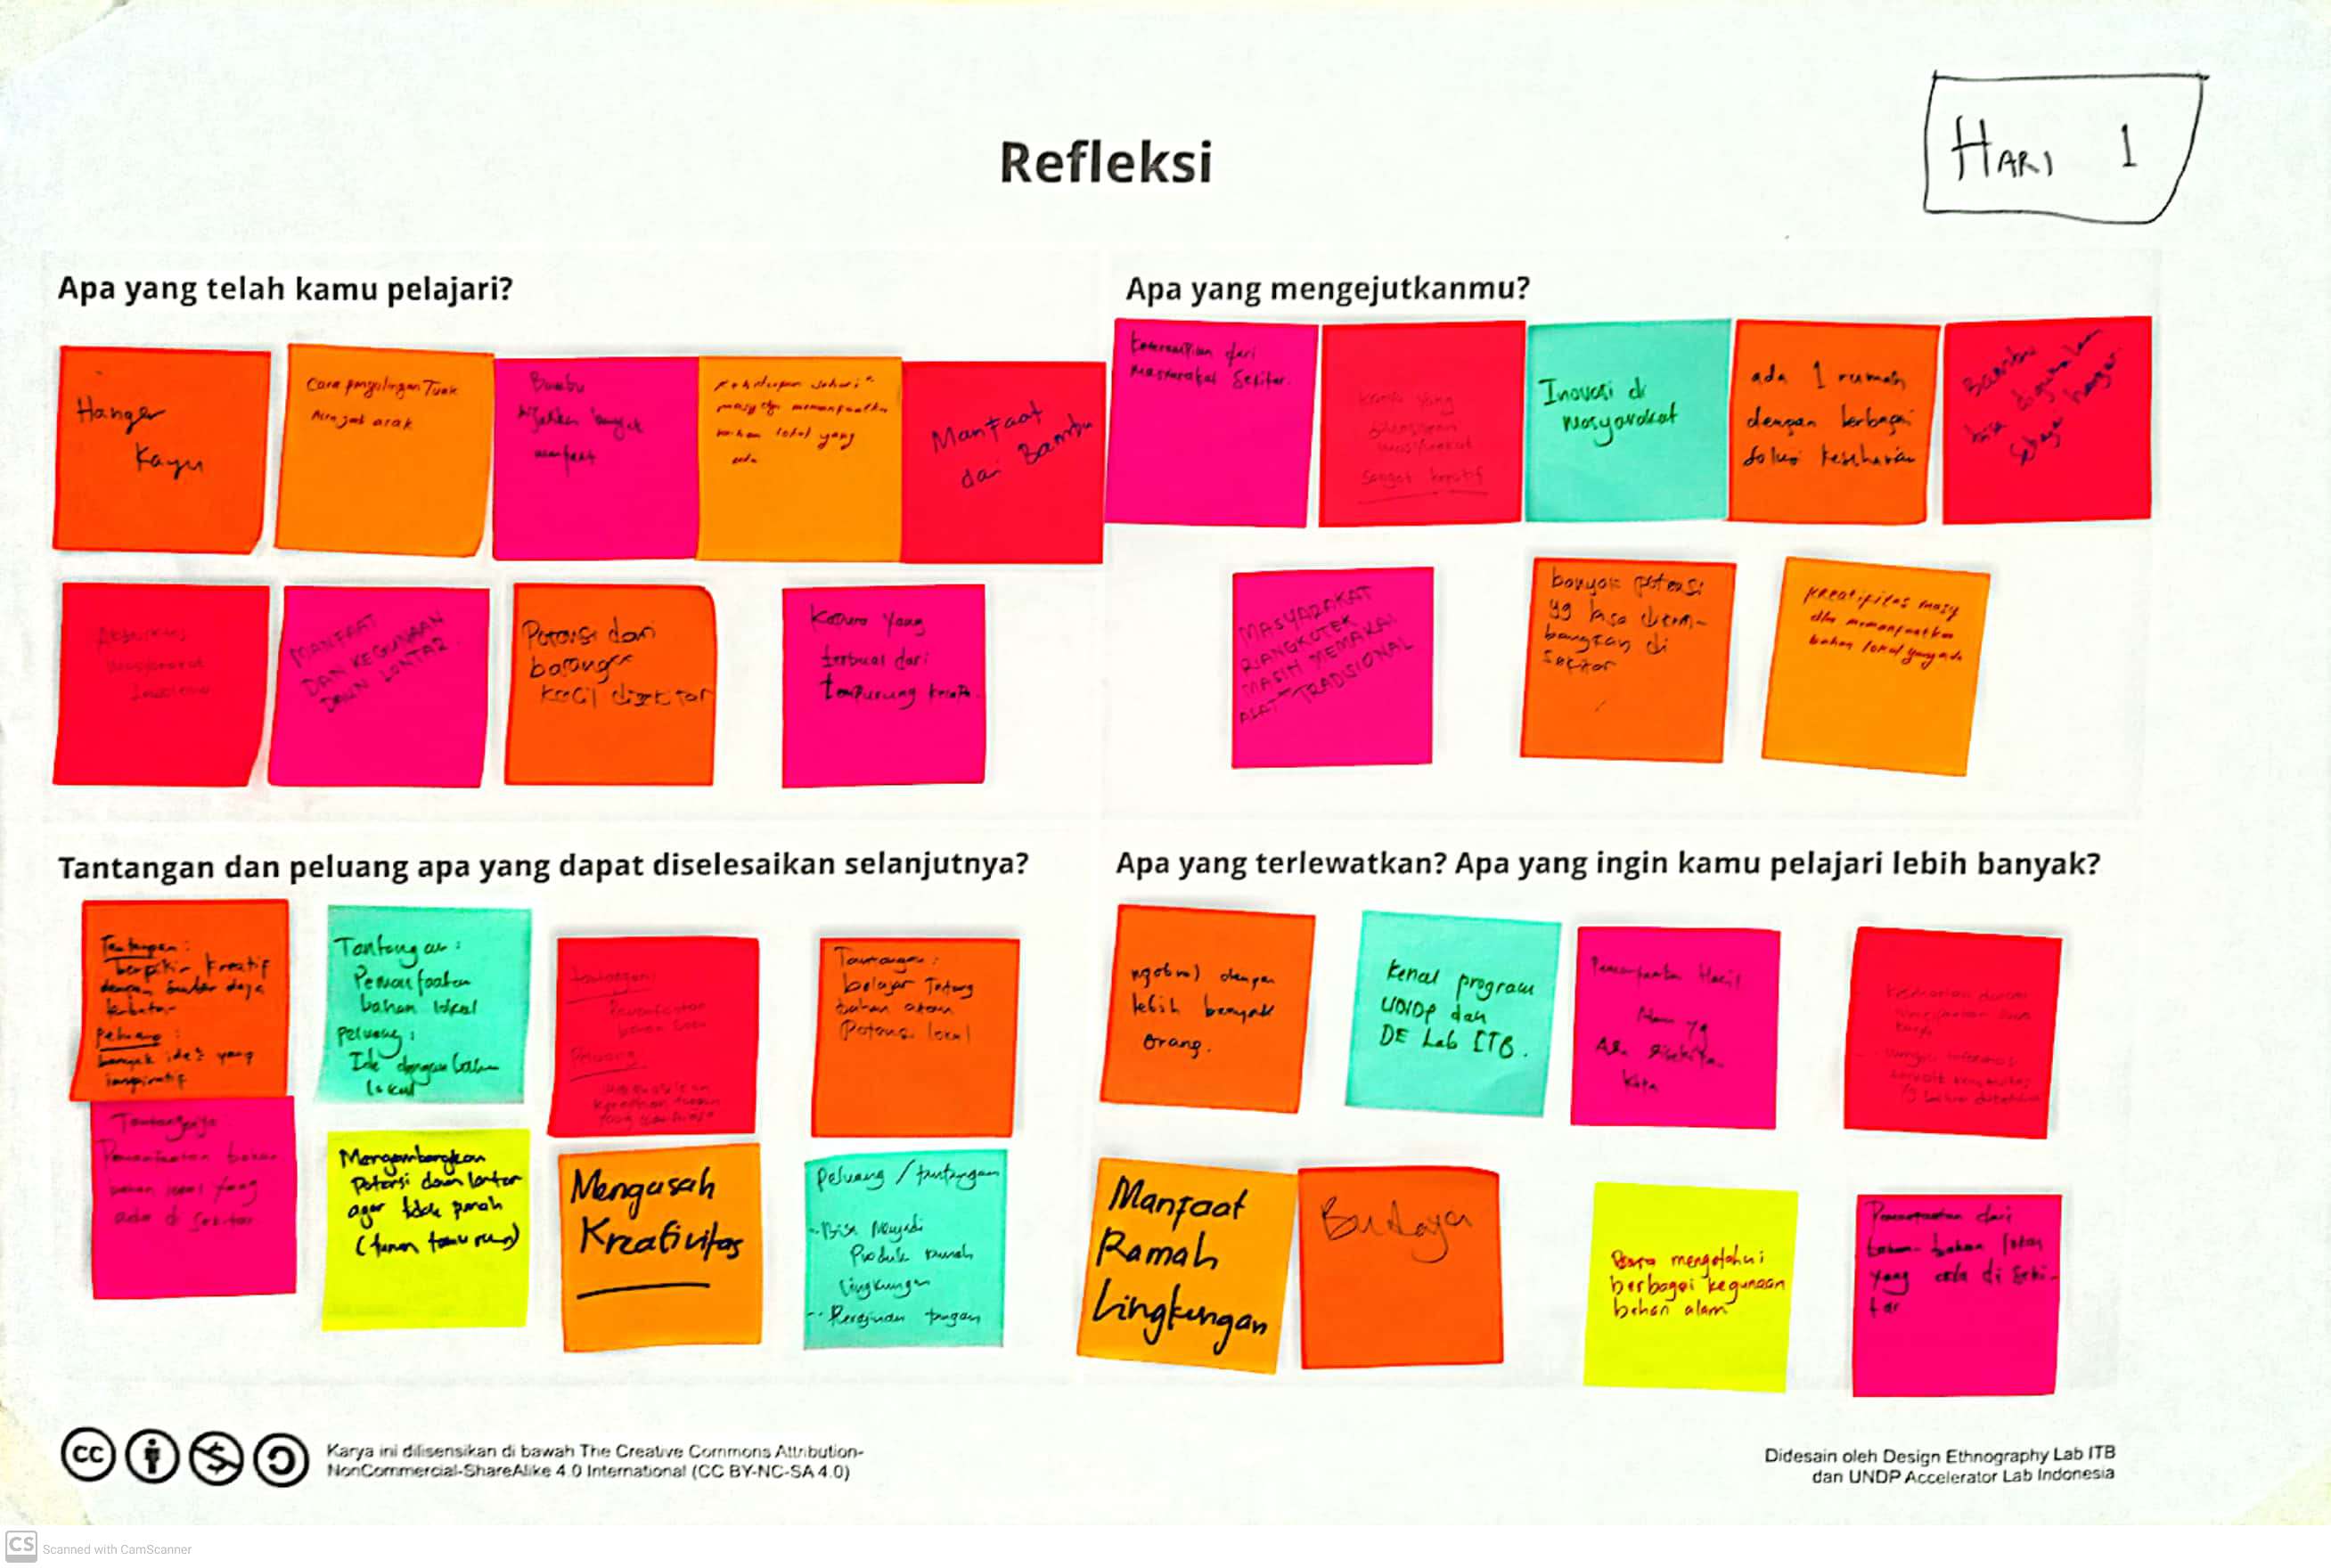 Refleksi
HARI 1
Apa yang telah kamu pelajari?
Hanger
Kayu
Cara penyulingan Tuak
arak
Bambu
banyak
manfaat
memanfaatkan
bahan lokal yang
ada
Manfaat
dari Bambu
masyarakat
MANFAAT
DAN KEGUNAAN
DAUN LONTAR
Potensi dari
barang²
kecil disekitar
Karya yang
terbuat dari
tempurung kelapa
Apa yang mengejutkanmu?
Keterampilan dari
Masyarakat Sekitar.
Karya yang
masyarakat
Sangat kreatif
Inovasi di
masyarakat
ada 1 rumah
dengan berbagai
solusi keseharian
Bambu
bisa digunakan
sebagai hanger
MASYARAKAT
RIANGKOTEK
MASIH MEMAKAI
ALAT TRADISIONAL
banyak potensi
yg bisa dikem-
bangkan di
sekitar
Kreatifitas masy
dlm memanfaatkan
bahan lokal yang ada
Tantangan dan peluang apa yang dapat diselesaikan selanjutnya?
Tantangan:
berpikir kreatif
dengan sumber daya
terbatas
Peluang:
banyak ide² yang
inspiratif
Tantangan:
Pemanfaatan
bahan lokal
Peluang:
Ide dengan bahan
lokal
Tantangan:
Pemanfaatan
bahan
Peluang
Tantangan:
belajar tentang
bahan alam
Potensi lokal
Pemanfaatan bahan
bahan lokal yang
ada di sekitar
Mengembangkan
Potensi daun lontar
agar tidak punah
(turun temurun)
Mengasah
Kreativitas
Peluang / tantangan
- Bisa Menjadi
Produk ramah
lingkungan
- Kerajinan tangan
Apa yang terlewatkan? Apa yang ingin kamu pelajari lebih banyak?
ngobrol dengan
lebih banyak
orang.
Kenal program
UNDP dan
DE Lab ITB.
Pemanfaatan Hasil
Alam yg
Ada disekitar
kita
Manfaat
Ramah
Lingkungan
Budaya
mengetahui
berbagai kegunaan
bahan alam
Pemanfaatan dari
bahan-bahan lokal
yang ada di seki-
tar
Karya ini dilisensikan di bawah The Creative Commons Attribution-
NonCommercial-ShareAlike 4.0 International (CC BY-NC-SA 4.0)
Didesain oleh Design Ethnography Lab ITB
dan UNDP Accelerator Lab Indonesia
CS Scanned with CamScanner